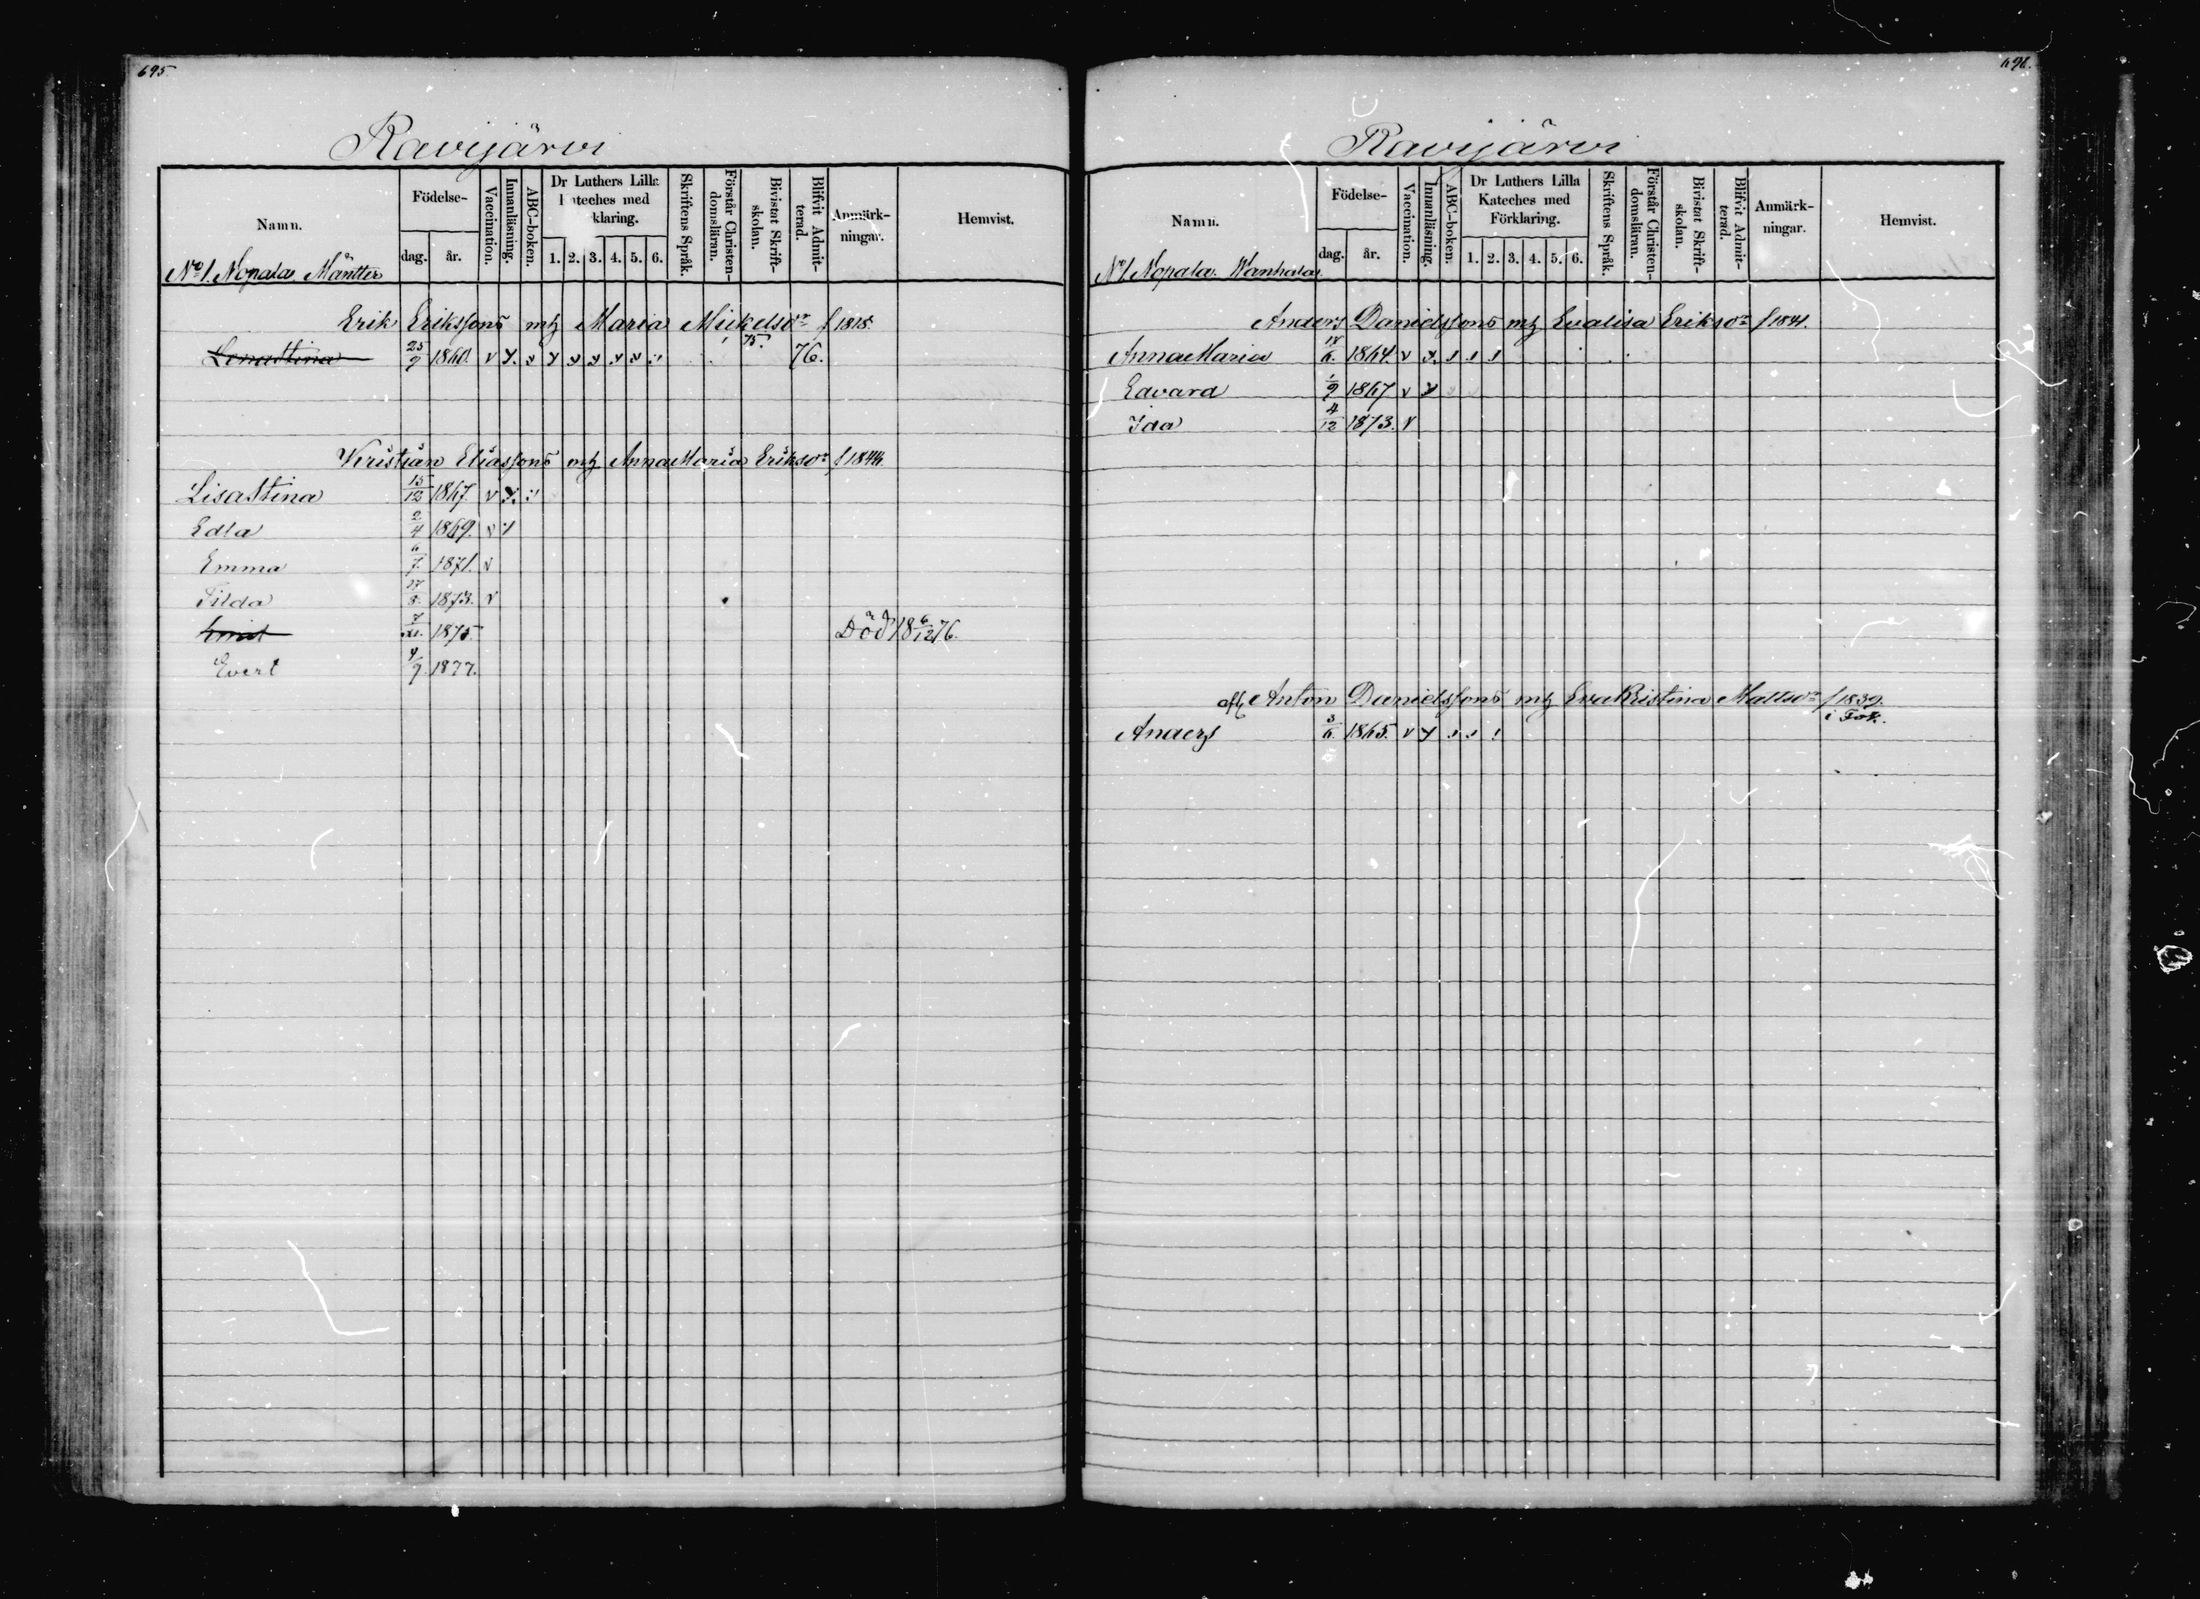 695.
Ravijärvi
Namn.
Födelse-
dag.
år.
Vaccination.
Innanläsning.
ABC-boken.
Dr Luthers Lilla
Kateches med
klaring.
1. 2. 3. 4. 5. 6.
Skriftens Språk.
Förstår Christen-
domsläran.
Bivistat Skrift-
skolan.
Blifvit Admit-
terad.
Anmärk-
ningar.
Hemvist.
No 1. Nopala Mäntter
Erik Erikssons mh Maria Mickelsdr f 1818.
Lenastina 25/9 1860. v y. y y y y y y 75. 76.
Kristian Eliassons mh AnnaMaria Eriksdr f 1844.
Lisastina 15/12 1867. v y.
Edla 2/4 1869. v
Emma 6/7. 1871. v
Tilda 27/8. 1873. v
1875 Död 18 6/12 76.
Evert 4/9. 1877.
696.
Ravijärvi
Namn.
Födelse-
dag.
år.
Vaccination.
Innanläsning.
ABC-boken.
Dr Luthers Lilla
Kateches med
Förklaring.
1. 2. 3. 4. 5. 6.
Skriftens Språk.
Förstår Christen-
domsläran.
Bivistat Skrift-
skolan.
Blifvit Admit-
terad.
Anmärk-
ningar.
Hemvist.
No 1. Nopala. Wanhala.
Anders Danielssons mh Evalisa Eriksdr f 1841.
AnnaMaria 18/6. 1864. v y.
Edvard 1/9 1867 v y
Ida 4/12 1873. v
afh Anton Danielssons mh EvaKristina Mattsdr f 1839.
i Fok.
Anders 3/6. 1865. v y